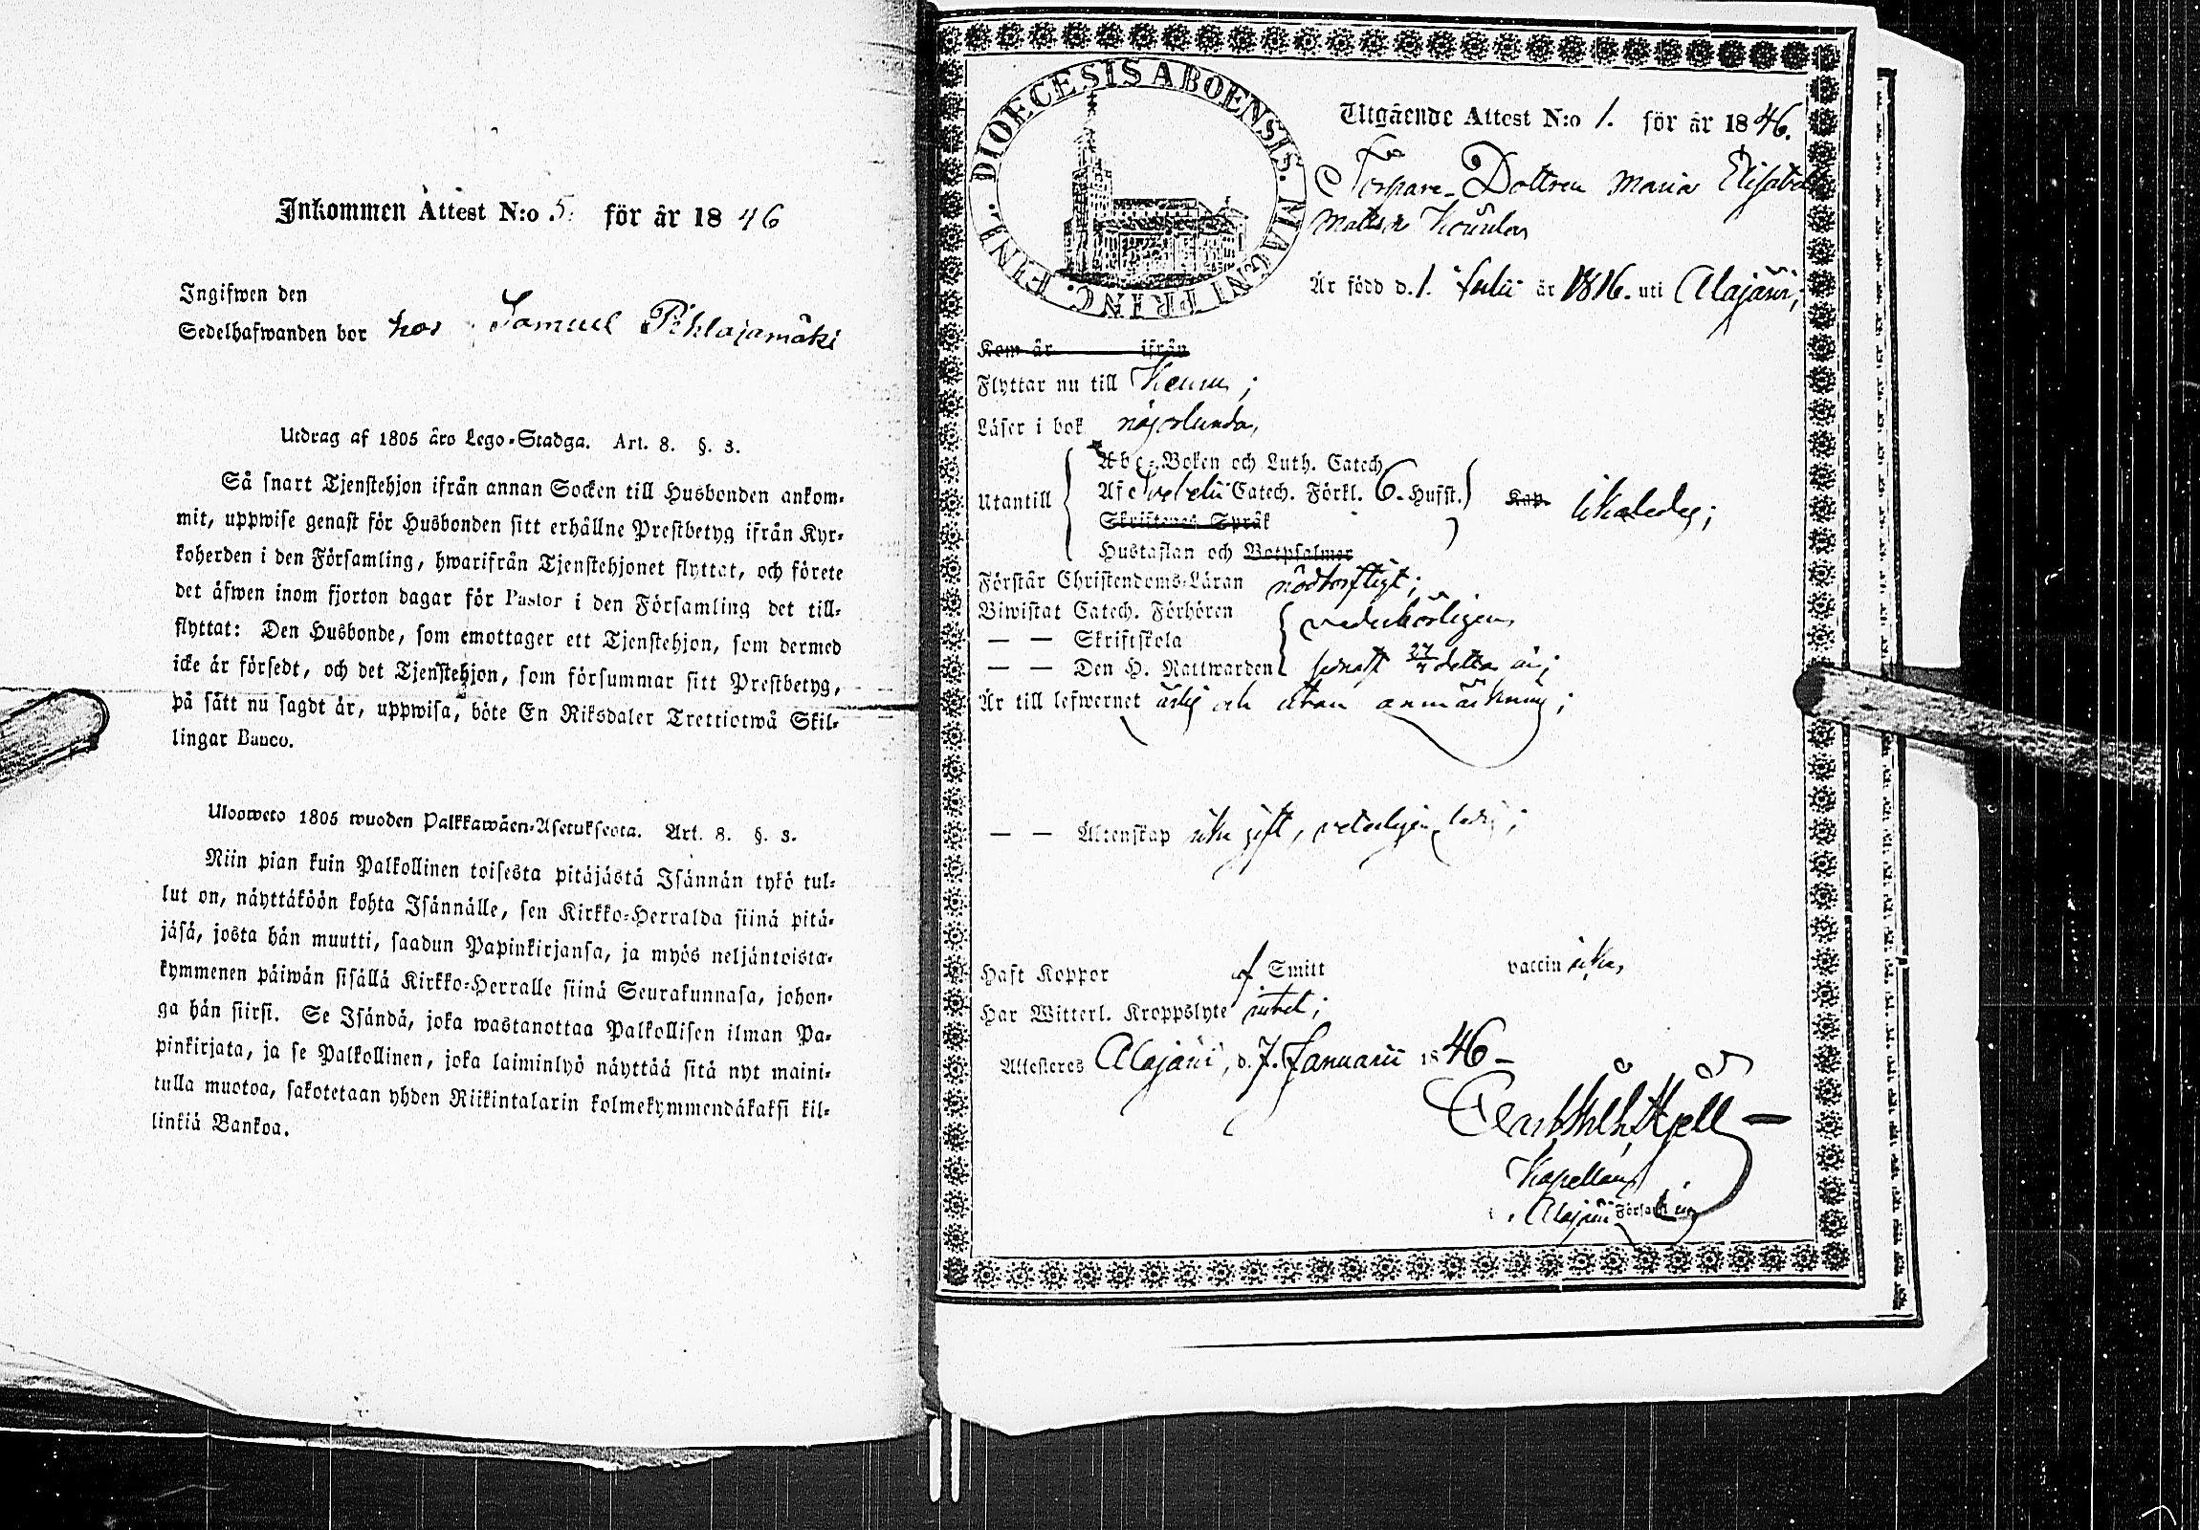 Inkommen Attest N:o 5. för år 1846
Ingifwen den
Sedelhafwanden bor hos Samuel Pihlajamäki
Utdrag af 1805 års Lego-Stadga. Art. 8. §. 3.
Så snart Tjenstehjon ifrån annan Socken till Husbonden ankom-
mit, uppwise genast för Husbonden sitt erhållne Prestbetyg ifrån Kyr-
koherden i den Församling, hwarifrån Tjenstehjonet flyttat, och förete
det äfwen inom fjorton dagar för Pastor i den Församling det till-
flyttat: Den Husbonde, som emottager ett Tjenstehjon, som dermed
icke är försedt, och det Tjenstehjon, som försummar sitt Prestbetyg,
på sätt nu sagdt är, uppwisa, böte En Riksdaler Trettiotwå Skil-
lingar Banco.
Uloosweto 1805 wuoden Palkkawäen-Asetuksesta. Art. 8. §. 3.
Niin pian kuin Palkollinen toisesta pitäjästä Isännän tykö tul-
lut on, näyttäköön kohta Isännälle, sen Kirkko-Herralda siinä pitä-
jäsä, josta hän muutti, saadun Papinkirjansa, ja myös neljäntoista-
kymmenen päiwän sisällä Kirkko-Herralle siinä Seurakunnasa, johon-
ga hän siirsi. Se Isändä, joka wastanottaa Palkollisen ilman Pa-
pinkirjata, ja se Palkollinen, joka laiminlyö näyttää sitä nyt maini-
tulla muotoa, sakotetaan yhden Riikintalarin kolmekymmendäkaksi kil-
linkiä Bankoa.
DIOECESIS ABOENSIS. MAGNI PRINC. FINL.
Utgående Attest N:o 1. för år 1846.
Torpare-Dottren Maria Elisabet
Matts
Är född d. 1. Julii år 1816. uti Alajärvi;
Kom år ifrån
Flyttar nu till Keuru;
Läser i bok någorlunda,
Abc-Boken och Luth. Catech.
Utantill Af Svebelii Catech. Förkl. 6. Hufst. Kap. likaledes;
Skriftenes Språk
Hustaflan och Botpsalmer
Förstår Christendoms-Läran nödtorftigt;
Biwistat Catech. Förhören vederbörligen,
— — Skriftskola
— — Den H. Nattwarden senast detta år;
Är till lefwernet ärlig och utan anmärkning;
— — Äktenskap icke gift, veterligen ledig;
Haft Koppor af Smitt vaccin icke,
Har Witterl. Kroppslyte intet;
Attesteras Alajärvi, d. 7. Januarii 1846-
Kapellan
i Alajärvi Församling